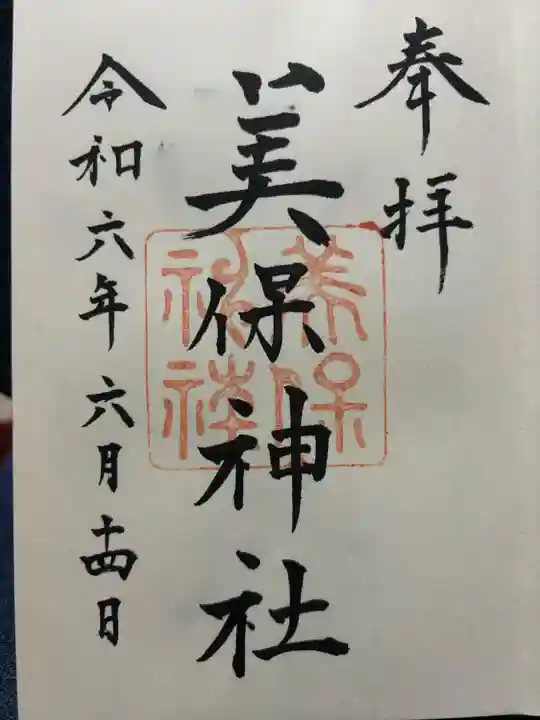 奉拝
美保神社
美保神社
令和六年六月十四日